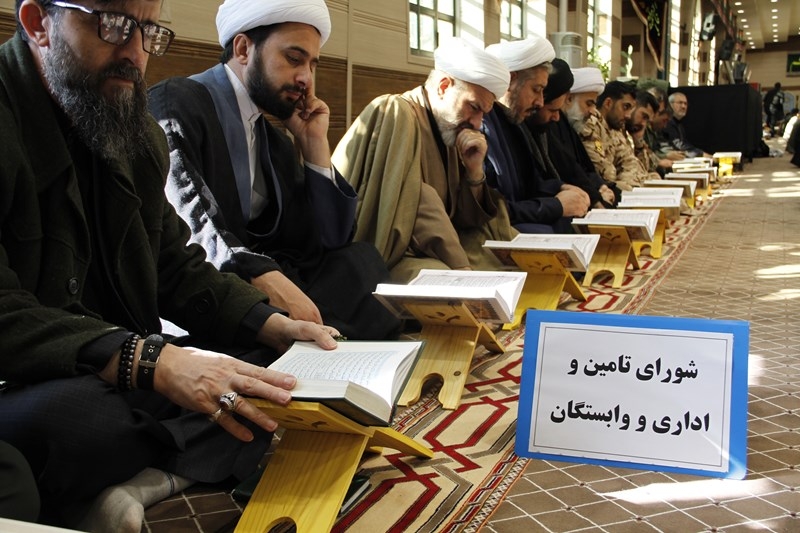 شورای تامین و
اداری و وابستگان